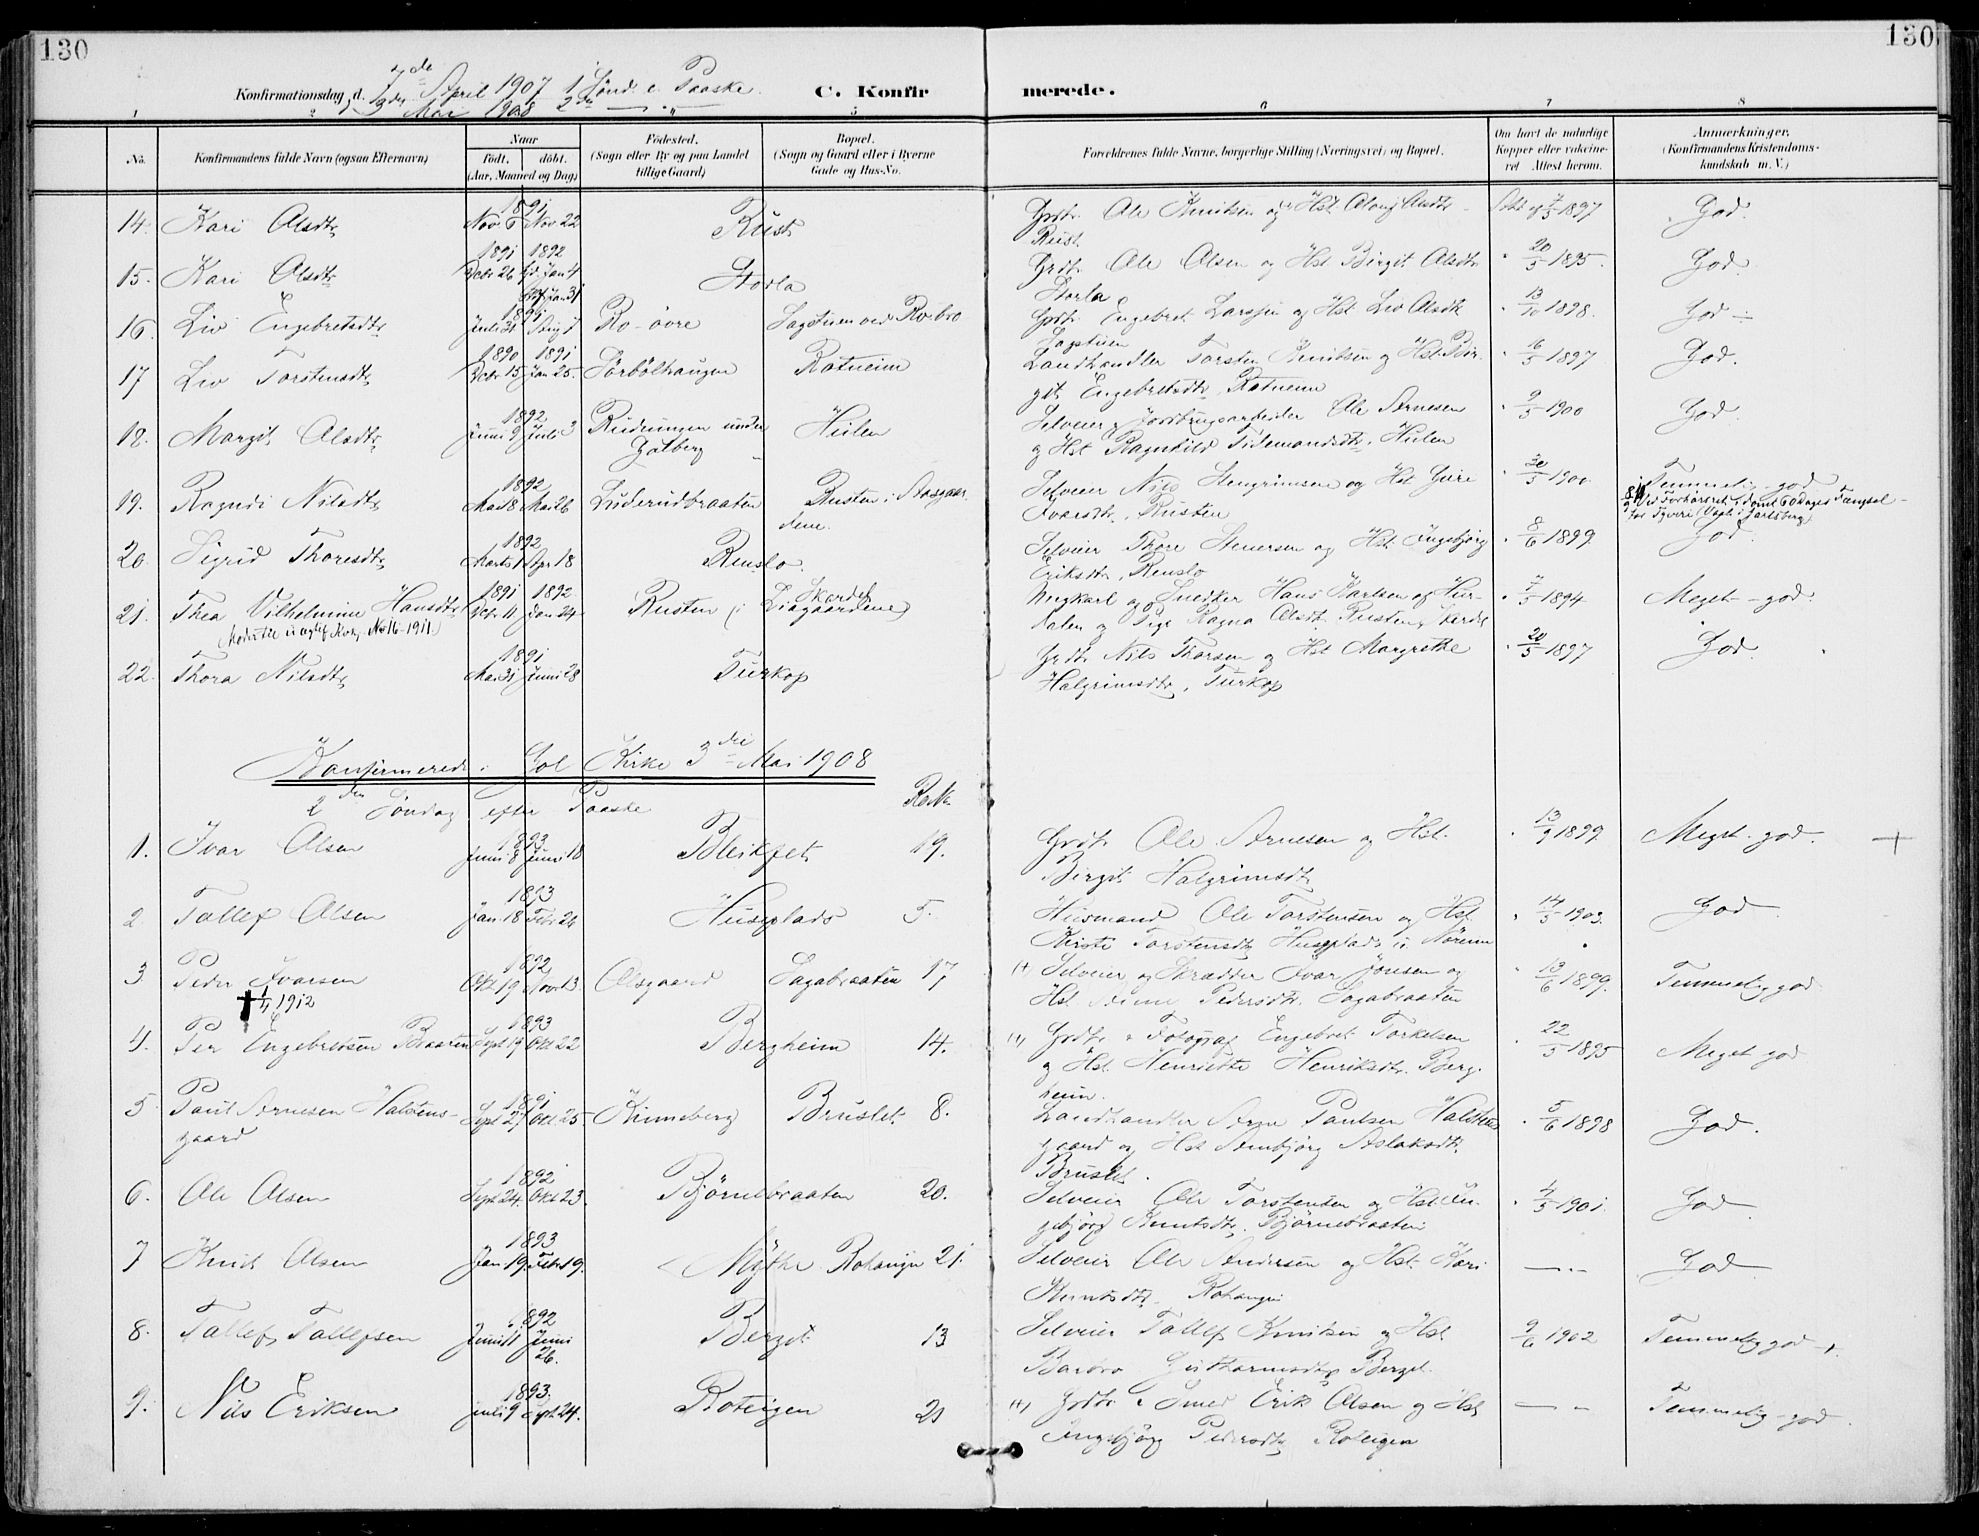 130
130
7de April 1907 1 Sønd. e. Paaske.
Konfirmationsdag, d. 3die Mai 1908 2den — " —
C. Konfirmerede.
1 2 5 6 7 8
No. Konfirmandens fulde Navn (ogsaa Efternavn)
Naar født. døbt. (Aar, Maaned og Dag)
Fødested. (Sogn eller By og paa Landet tillige Gaard)
Bopæl. (Sogn og Gaard eller i Byerne Gade og Hus-No.
Forældrenes fulde Navne, borgerlige Stilling (Næringsvei) og Bopæl.
Om havt de naturlige Kopper eller vakcineret Attest herom.
Anmærkninger. (Konfirmandens Kristendomskundskab m. V.)
14. Kari Olsdtr 1891 Nov 6 Nov 22 Rust Grdbr. Ole Knutsen og Hst. Olsdtr 7/5 1897 God.
Rust.
15. Kari Olsdtr 1891 1892 Dcbr 26 Jan 4 Storla Grdbr. Ole Olsen og Hst Birgit Olsdtr " 20/5 1895. God.
Jan 31 Storla
16. Liv Engebretsdtr 1891 Juli 31 Aug 7 Ro-øvre Sagstuen ved Robro Grdbr. Engebret Larssen og Hst Liv Olsdtr " 13/10 1898. God —
Sagstuen
17 Liv Torstensdtr 1890 1891 Dcbr 15 Jan 25. Sørbølhaugen Rotneim Landhandler Torsten Knutsen og Hst. Bir- " 16/5 1897 God.
git Engebretsdtr Rotneim
18. Margit Olsdtr 1892 Juni 9 Juli 3 Rudningen under Golberg Hulen Selveier, Jordbrugsarbeider Ole Arnesen " 9/5 1900 God.
og Hst Ragnhild Tidemandsdtr, Hulen
19. Ragndi Nilsdtr 1892 Mai 8 Mai 26 Luderudbraaten Rusten i Aasgaardene Selveier Nils Stengrimsen og Hst Guri " 30/5 1900 Temmelig-god
Ivarsdtr, Rusten Ved Forhørsret idømt 60 dages Fængsel
for Tyveri (Vogt i Jarlsberg)
20. Sigrid Thoresdtr 1892 Marts 1 Apr 18 Renslo. Selveier Thore Stenersen og Hst. Ingebjørg " 8/6 1899. God.
Eriksdtr, Renslo
21. Thea Vilhelmine Hansdtr 1891 1892 Dcbr. 11 Jan 24 Rusten (i Liagaardene) Skardet Ungkarl og Snedker Hans Karlsen af Hur- " 7/5 1894 Meget-god.
(Moder til uægtef. No 16-1911.) dalen og Pige Ragna Olsdtr. Rusten,
22. Thora Nilsdtr 1891 Mai 31 Juni 28 Turkop Grdbr Nils Thorsen og Hst Margrethe " 20/5 1897 God.
Halgrimsdtr, Turkop
Konfirmerede i Gol Kirke 3die Mai 1908
2den Søndag efter Paaske
1. Ivar Olsen 1893 Juni 8 Juni 18 Bleikfet 19. Grdbr Ole Arnesen og Hst. " 13/9 1899. Meget-god. +
Birgit Halgrimsdtr
2. Tollef Olsen 1893 Jan. 18 Febr 26 Huseplads 5. Husmand Ole Torstensen og Hst. " 14/5 1903. God
Kirsti Torstensdtr Huseplads u.
3 Peder Ivarsen 1892 Okt 19 Nov. 13. Olsgaard Sagabraaten 17 Selveier og Skrædder Ivar Jonsen og " 13/6 1899. Temmelig god
† 1912 Hst. Pedersdtr. Sagabraaten
4. Per Engebretsen Braaten 1893 Sept 19 Okt 22 Bergheim 14. Grdbr & Fotograf Engebret Torkelsen " 22/5 1895 Meget god
og Hst Henriette Henriksdtr. Berg-
heim.
5 Paul Arnesen Halstens- 1891 Sept 27 Okt. 25. Kinneberg Bruslet 8. Landhandler Arne Paulsen Halstens- " 5/6 1898 God.
gaard gaard og Hst Aslaksdtr,
Bruslet.
6. Ole Olsen 1892 Sept. 24. Okt 23 Bjørnebraaten 20. Selveier Ole Torstensen og Hst. In- " 4/5 1901. God
gebjørg Knutsdtr, Bjørnebraaten
7 Knut Olsen 1893 Jan 19. Febr 19. Mythe Rohaugen 21. Selveier Ole Andersen og Hst. Kari —"— God
Knutsdtr. Rohaugen
8. Tollef Tollefsen 1892 Juni 11 Juni 26. Berget 13 Selveier Tollef Knutsen og Hst 9/6 1902 Temmelig god +.
Barbro Guthormsdtr Berget.
9. Nils Eriksen 1893. Juli 9 Sept. 24. Roteigen 21 Grdbr & Smed Erik Olsen og Hst — " — Temmelig-god
Ingebjørg Pedersdtr Roteigen